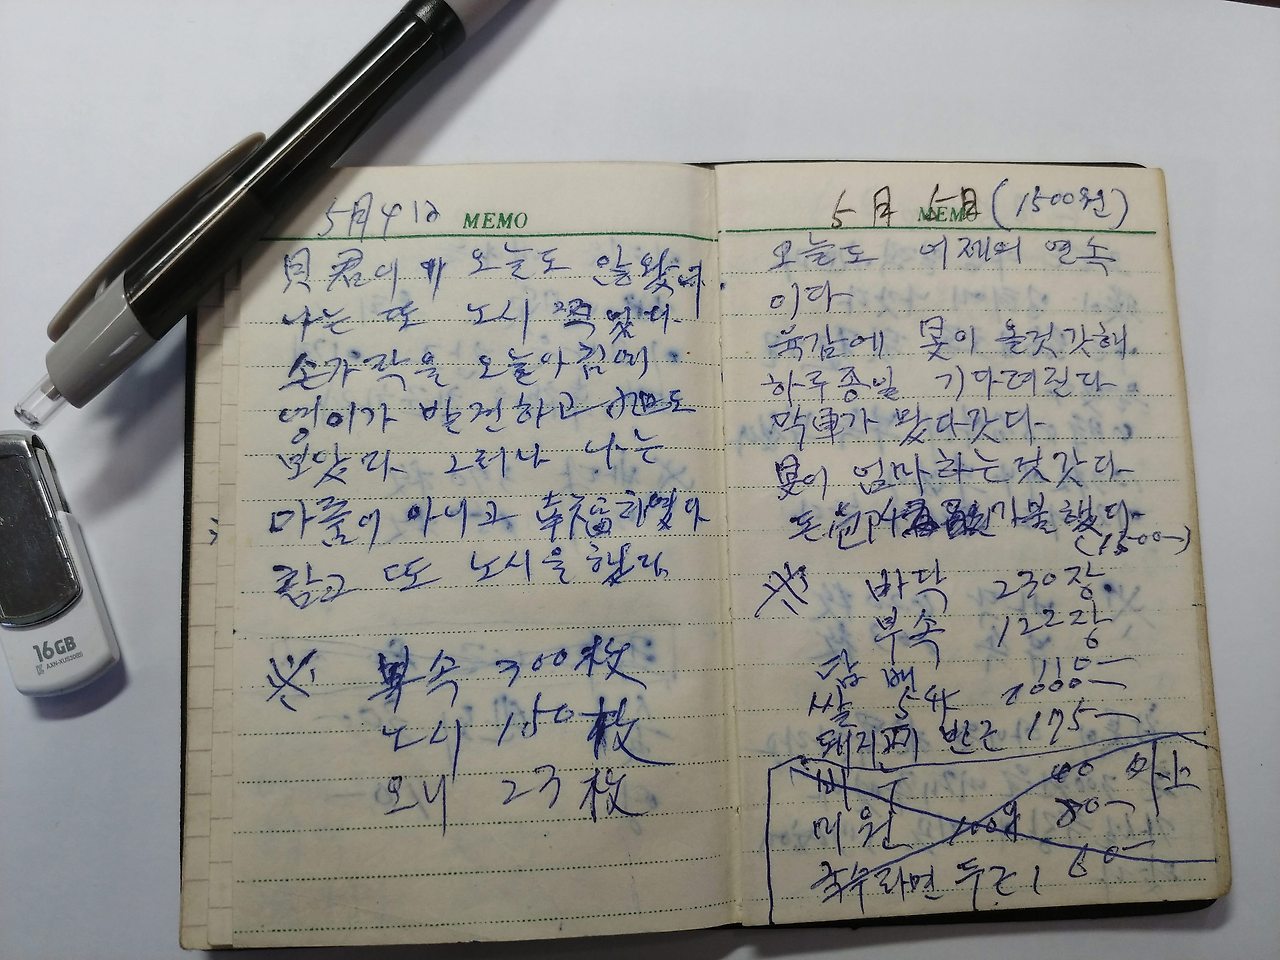 5月4日 MEMO
貝君이 오늘도 않왔어
나는 또 노시 찍었다
손가락을 오늘아침에
영이가 발견하고
보았다 그러나 나는
마음이 아니고 幸福하였다
참고 또 노시을 했다
※ 부속 300枚
노시 150枚
오니 23枚
5月 5日 (1500원)
MEMO
오늘도 어제의 연속
이다
육감에 旻이 올것갓해
하루종일 기다려린다
막車가 왔다갓다
旻이 엄마하는것갓다
돈 가불했다
(1500-)
※ 바닥 230장
부속 122장
담배 110-
쌀 5싸 2000-
돼지고기 반근 175-
40 취소
미원 100g 80-
국수라면 두근 1 60-
16GB
AXN-XUS3016S